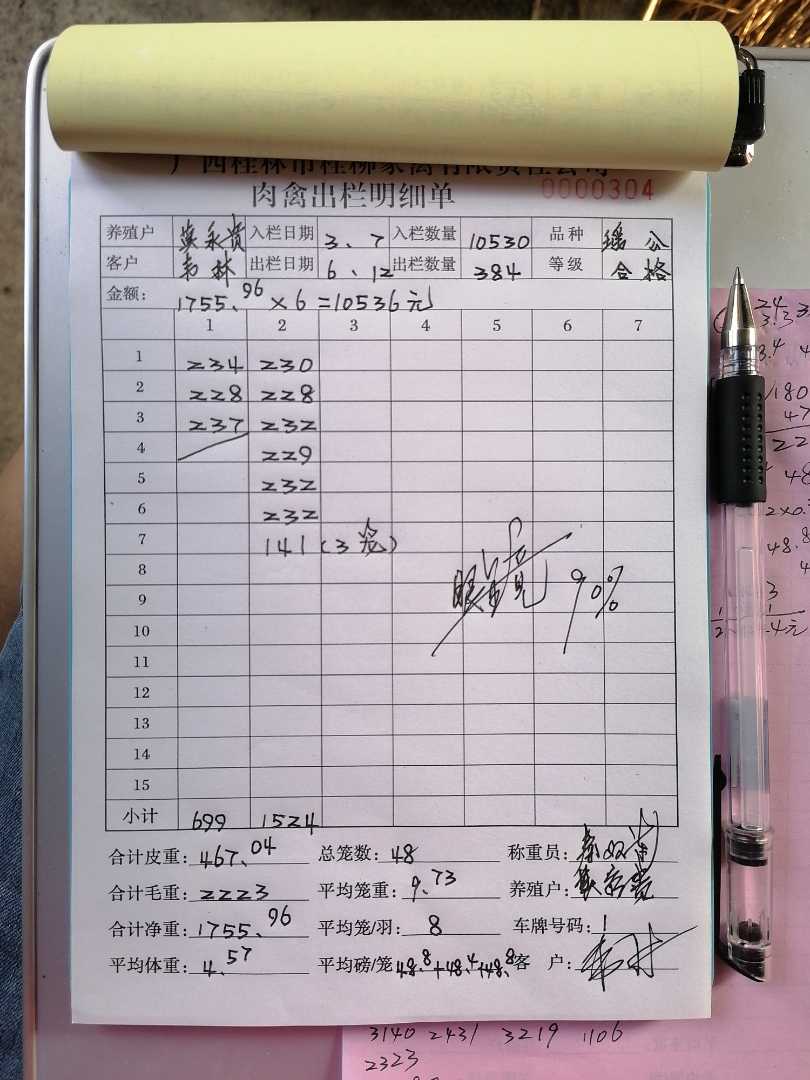 广西桂林市桂柳家禽有限责任公司
肉禽出栏明细单 0000304
养殖户 永贵 入栏日期 3、7 入栏数量 10530 品种 瑶公
客户 韦林 出栏日期 6、12 出栏数量 384 等级 合格
金额： 1755.96×6=10536元
1 2 3 4 5 6 7
1 234 230
2 228 228
3 237 232
4 229
5 232
6 232
7 141(3笼)
8
9 90%
10
11
12
13
14
15
小计 699 1524
合计皮重：467.04 总笼数：48 称重员：
合计毛重：2223 平均笼重：9.73 养殖户：
合计净重：1755.96 平均笼/羽：8 车牌号码：1
平均体重：4.57 平均磅/笼 48.8+48.4+48.8 客 户：
3140 2431 3219 1106
2323